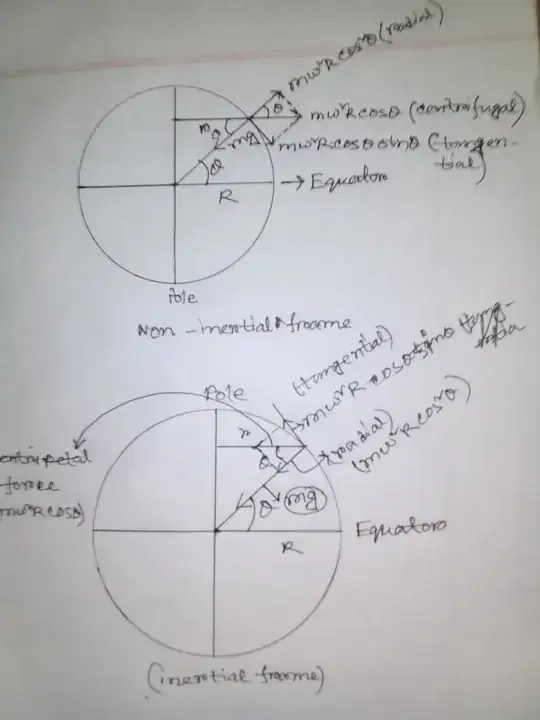 mω²R cos²θ (radial)
θ
mω²R cosθ (centrifugal)
r
θ
mg
mω²R cosθ sinθ (tangen-
tial)
θ
R
→ Equator
Pole
Non-inertial frame
(tangential)
mω²R cosθ sinθ
Pole
r
(radial)
(mω²R cos²θ)
entripetal
force
mω²R cosθ)
θ
θ
mg
Equator
R
(inertial frame)